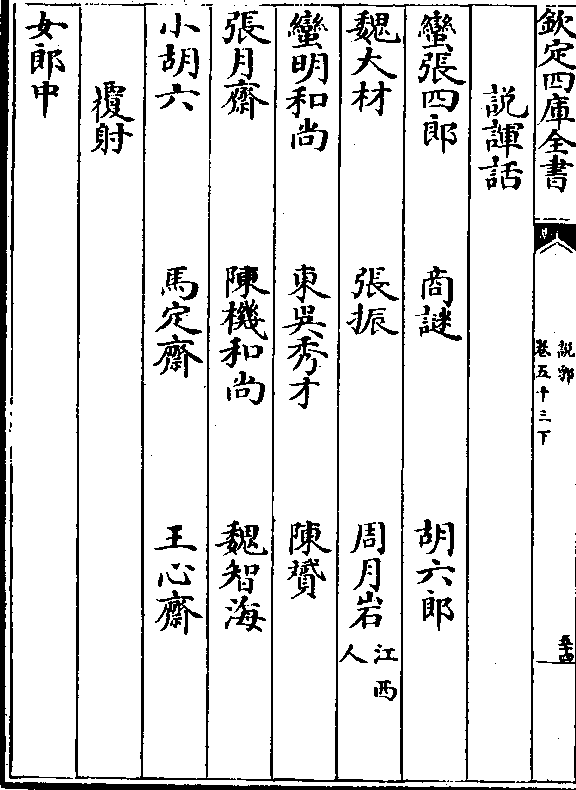 欽定四庫全書
説郛
卷五十三下
五十四
説諢話
蠻張四郎
商謎
胡六郎
魏大材
張振
周月岩江西人
蠻明和尚
東吳秀才
陳贇
張月齋
陳機和尚
魏智海
小胡六
馬定齋
王心齋
覆射
女郎中